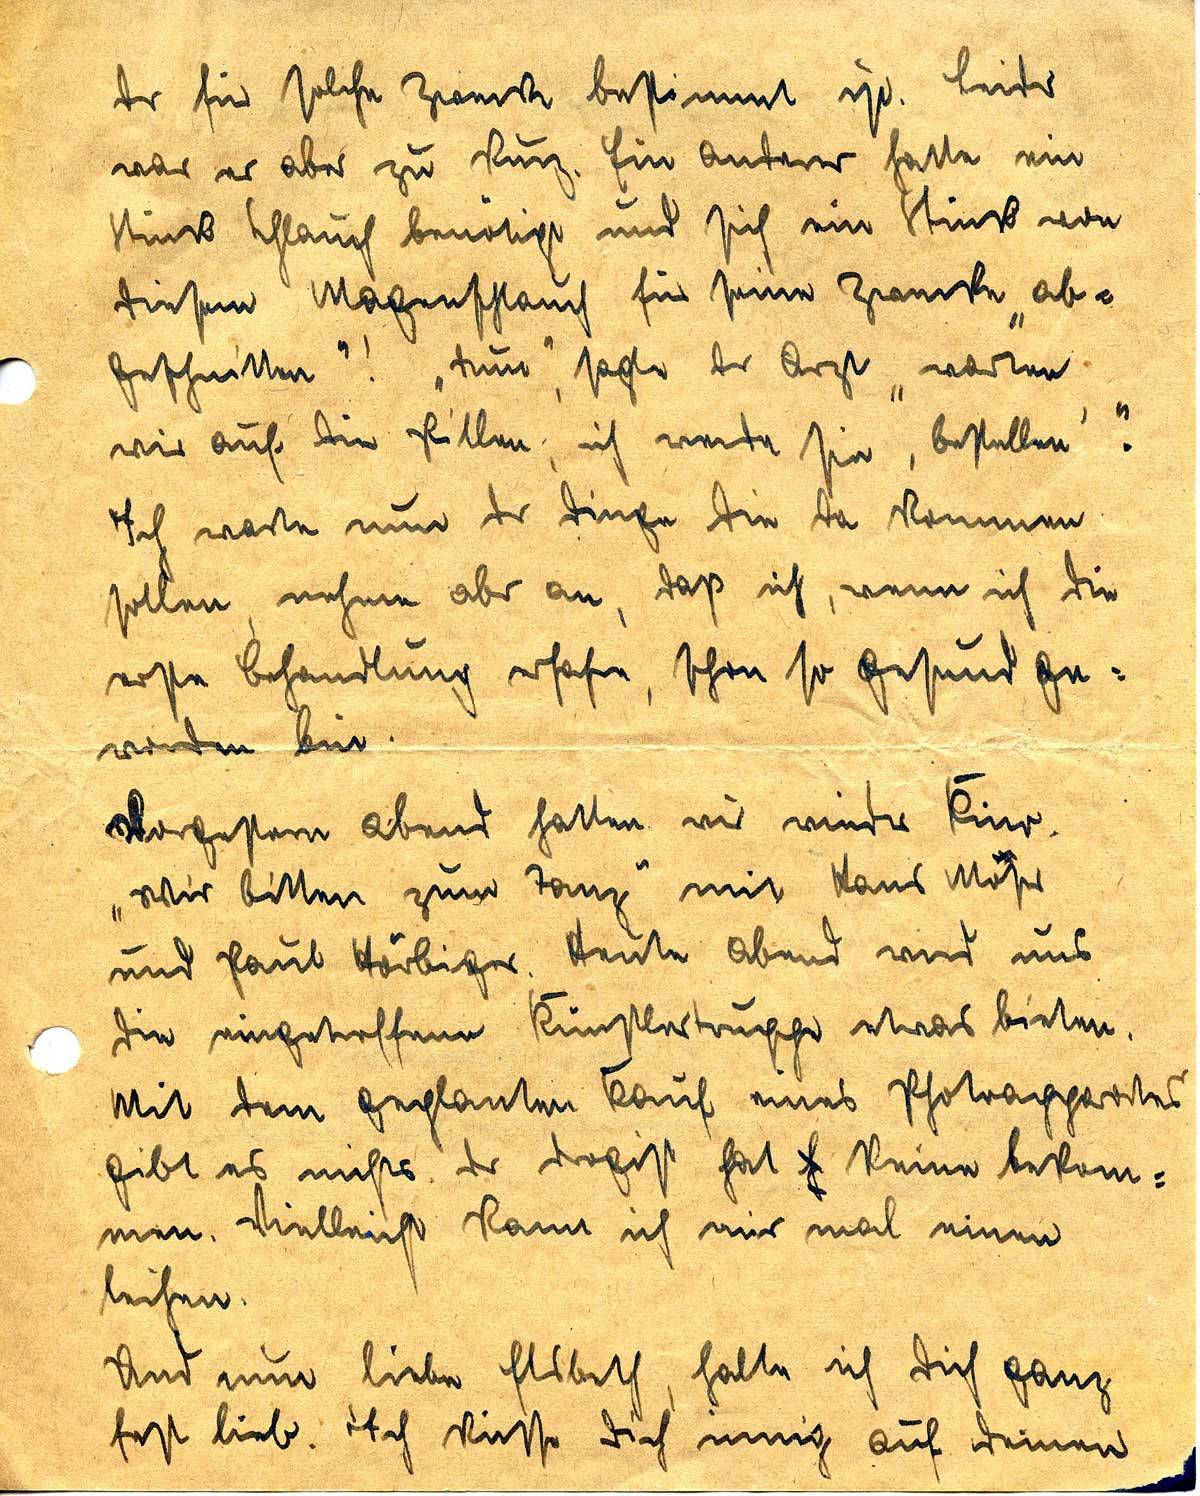 der für solche Zwecke bestimmt ist. Leider
war er aber zu kurz. Ein anderer hatte ein
Stück Schlauch benötigt und sich ein Stück von
diesem Magenschlauch für seine Zwecke „ab=
geschnitten"! „Nun", sagte der Arzt „warten
wir auf die Pillen, ich werde sie bestellen".
Ich warte nun der Dinge die da kommen
sollen, nehme aber an, daß ich, wenn ich die
erste Behandlung erfahre, schon so gesund ge=
worden bin.
Vorgestern Abend hatten wir wieder Kino.
„Wir bitten zum Tanz" mit Hans Moser
und Paul Hörbiger. Heute Abend wird uns
die eingetroffene Künstlertruppe etwas bieten.
Mit dem geplanten Kauf eines Photoapparates
gibt es nichts. Der Drogist hat keine bekom=
men. Vielleicht kann ich mir mal einen
leihen.
Und nun liebe Elsbeth, halte ich Dich ganz
fest lieb. Ich küsse Dich innig auf Deinen